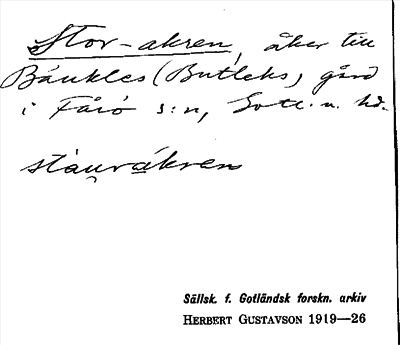 Stor-akren, åker till
Bäukles (Butleks) gård
i Fårö s:n, Gotl. n. hd.
stau̯rákren
Sällsk. f. Gotländsk forskn. arkiv
HERBERT GUSTAVSON 1919—26